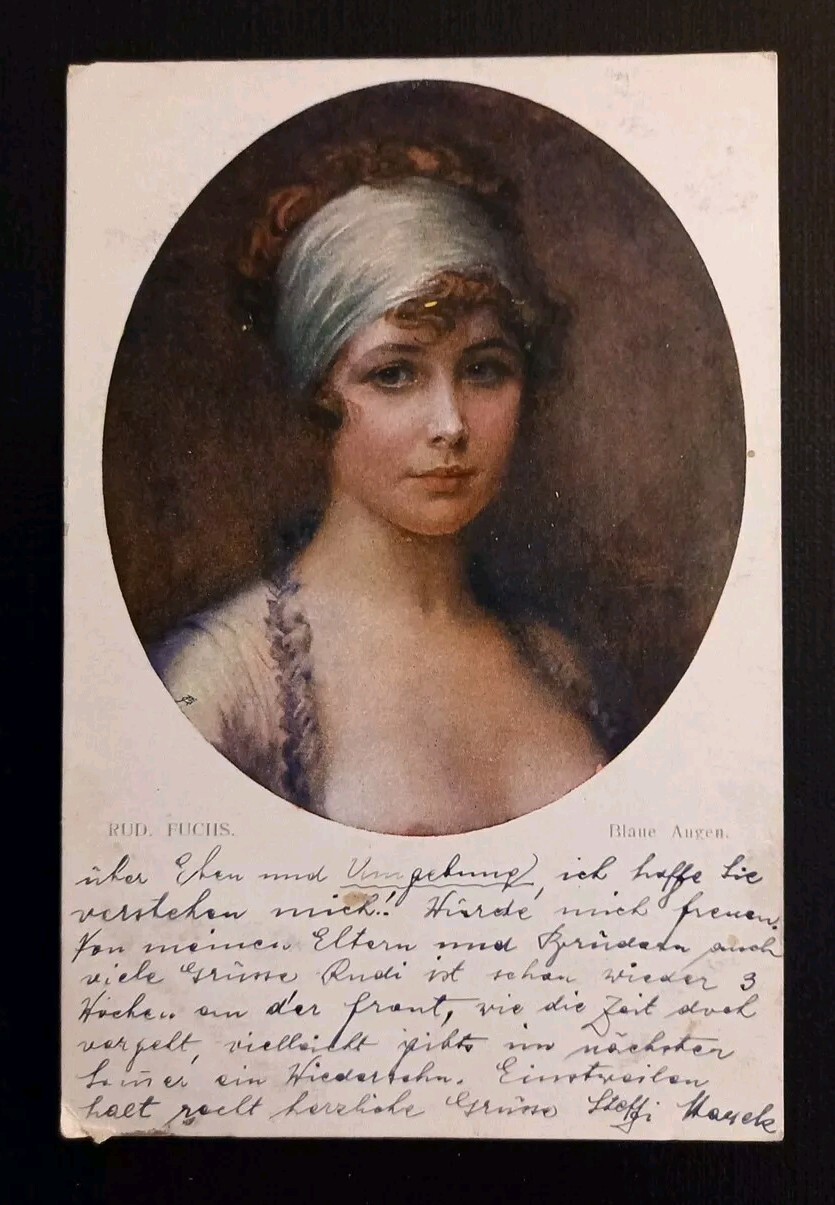 RUD. FUCHS.
Blaue Augen.
über Eben und Umgebung, ich hoffe Sie
verstehen mich!! Würde mich freuen.
Von meinen Eltern und Brüdern auch
viele Grüsse Rudi ist schon wieder 3
Wochen an der front, wie die Zeit doch
vergeht, vielleicht gibts im nächsten
Somer ein Wiedersehn. Einstweilen
halt recht herzliche Grüsse Steffi